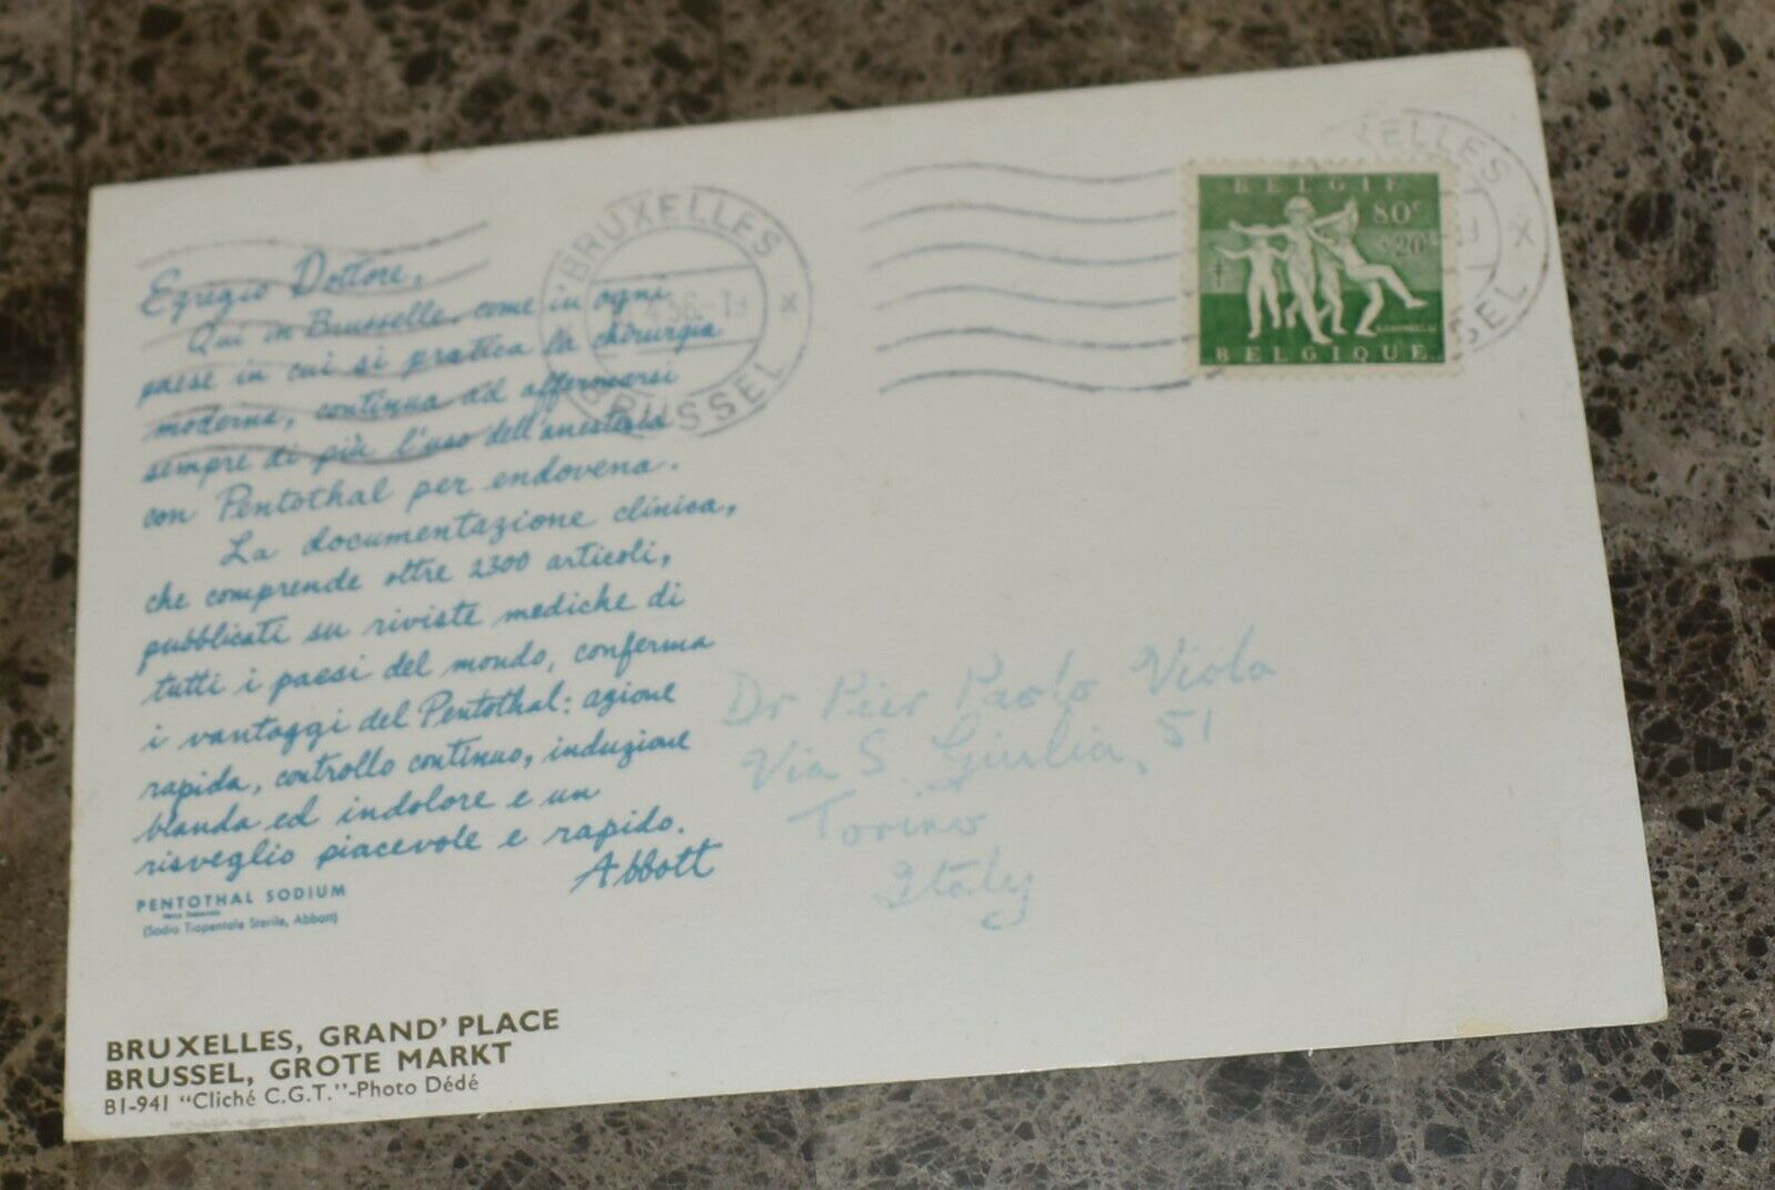 Egregio Dottore,
Qui in Brusselle, come in ogni
paese in cui si pratica la chirurgia
moderna, continua ad affermarsi
sempre di più l'uso dell'anestesia
con Pentothal per endovena.
La documentazione clinica,
che comprende oltre 2300 articoli,
pubblicati su riviste mediche di
tutti i paesi del mondo, conferma
i vantaggi del Pentothal: azione
rapida, controllo continuo, induzione
blanda ed indolore e un
risveglio piacevole e rapido.
Abbott
PENTOTHAL SODIUM
(Sodio Tiopentale Sterile, Abbott)
BRUXELLES, GRAND' PLACE
BRUSSEL, GROTE MARKT
B1-941 "Cliché C.G.T."-Photo Dédé
BRUXELLES
BRUSSEL
BELGIE
80c
+20c
BELGIQUE
XELLES
SEL
Dr Pier Paolo Viola
Via S. Giulia, 51
Torino
Italy